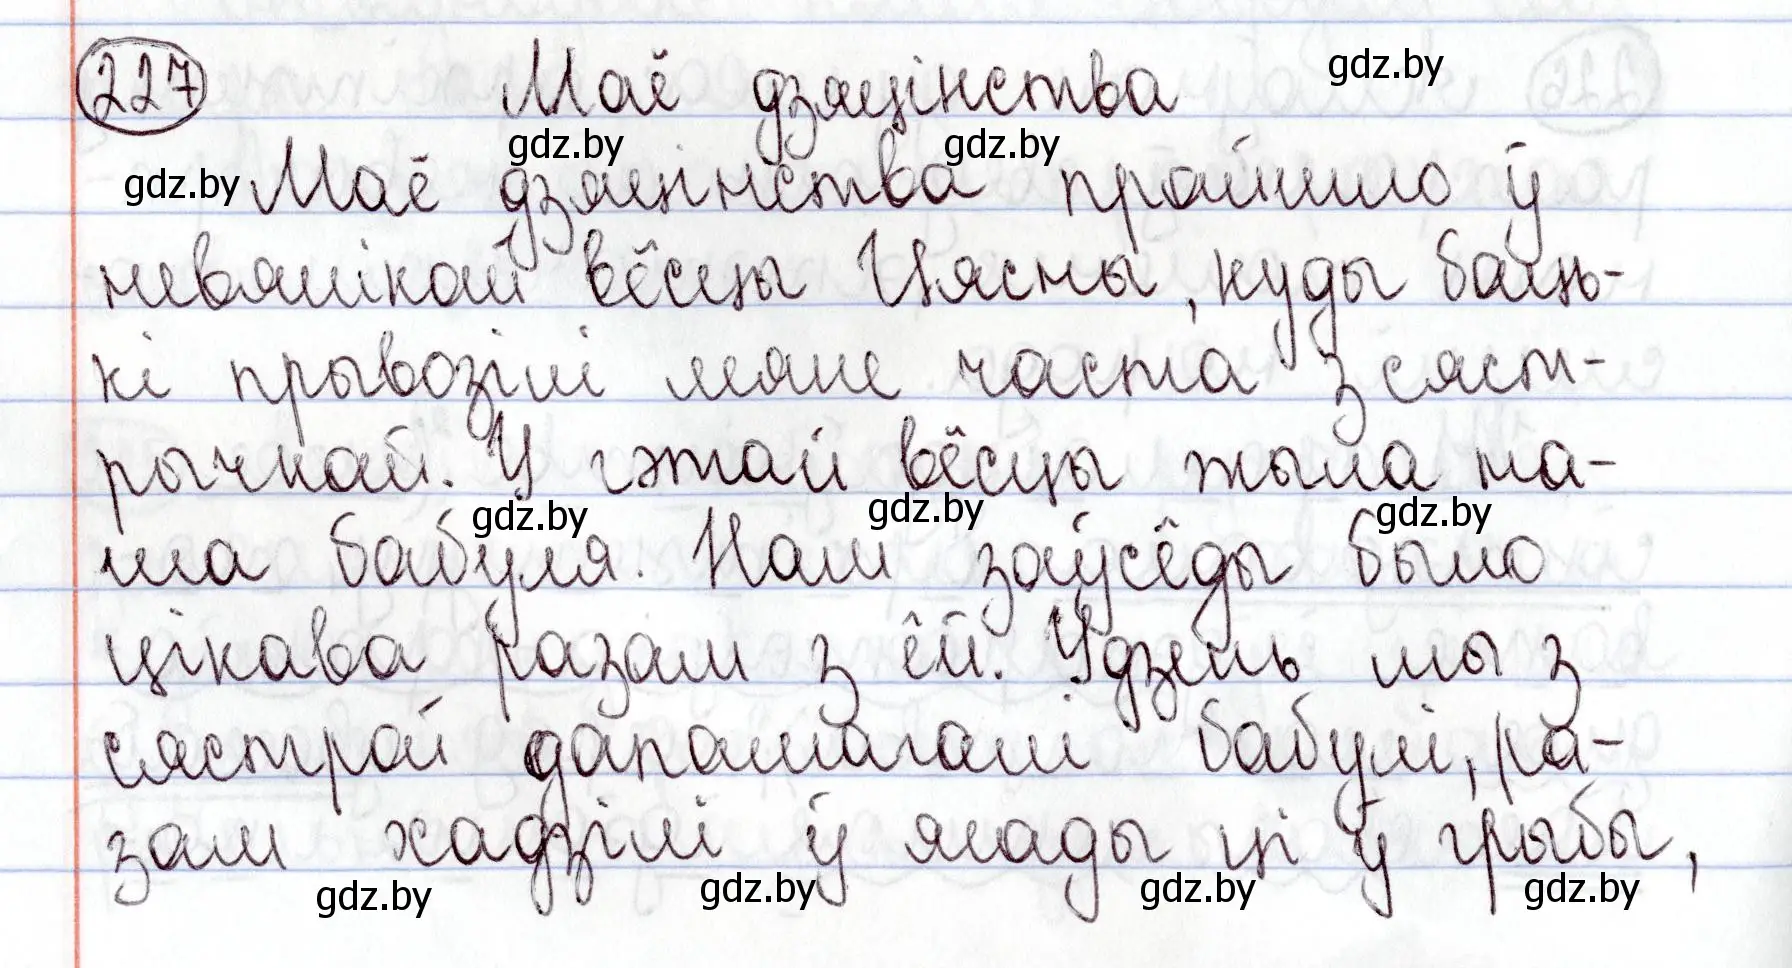 227 Маё дзяцінства gdz.by
gdz.by gdz.by
gdz.by Маё дзяцінства прайшло ў
невялікай вёсцы Цясны, куды баць-
кі прывозілі мяне часта з сяст-
рычкай. У гэтай вёсцы жыла на-
gdz.by gdz.by gdz.by
ша бабуля. Нам заўсёды было
цікава разам з ёй. Удзень мы з
сястрой дапамагалі бабулі, ра-
зам хадзілі ў ягады ці ў грыбы,
gdz.by gdz.by gdz.by gdz.by